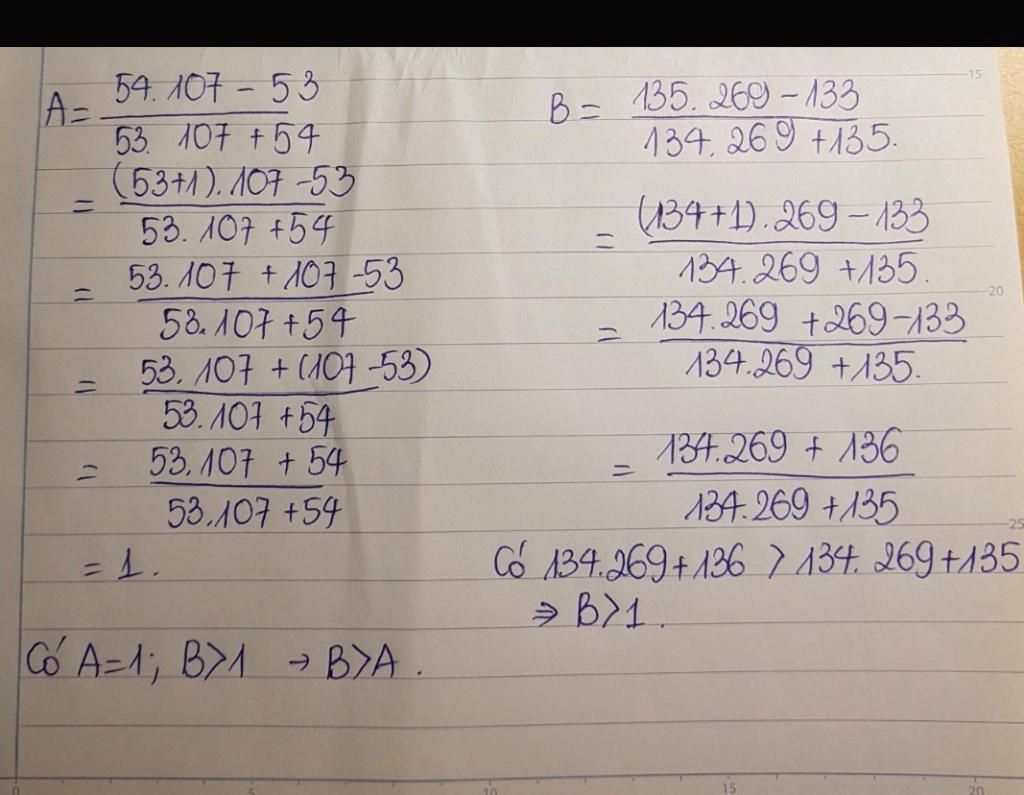 A = (54.107 - 53)/(53. 107 + 54)
= ((53+1).107 - 53)/(53.107 + 54)
= (53.107 + 107 - 53)/(53.107 + 54)
= (53.107 + (107 - 53))/(53.107 + 54)
= (53.107 + 54)/(53.107 + 54)
= 1.
B = (135.269 - 133)/(134.269 + 135.)
= ((134+1).269 - 133)/(134.269 + 135.)
= (134.269 + 269 - 133)/(134.269 + 135.)
= (134.269 + 136)/(134.269 + 135)
Có 134.269 + 136 > 134.269 + 135
⇒ B > 1.
Có A = 1; B > 1 → B > A.
15
20
25
0 5 10 15 20